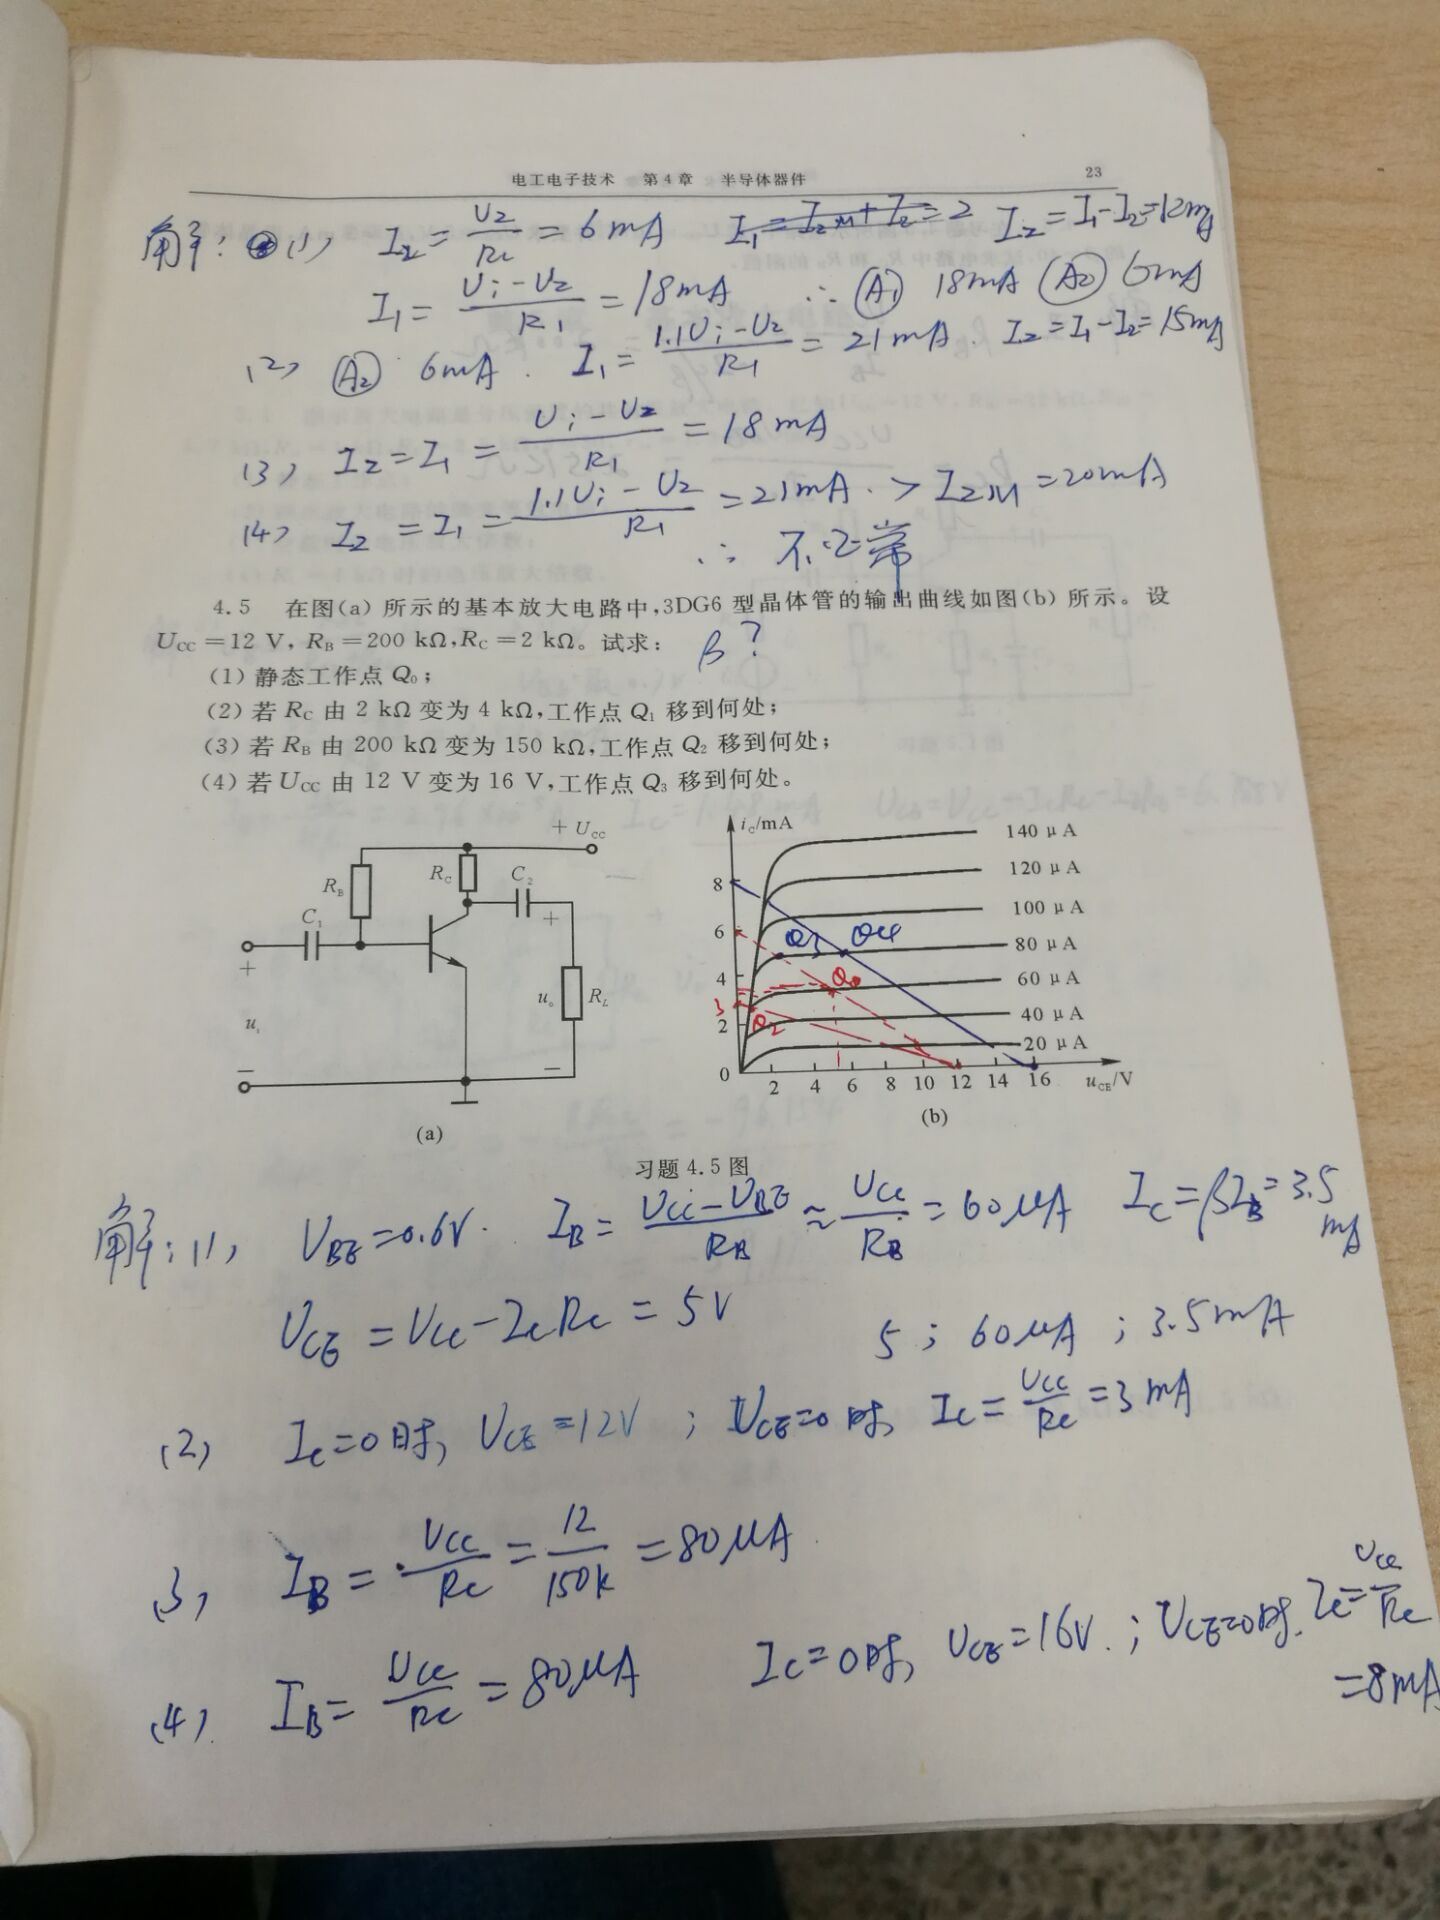 电工电子技术 第4章 半导体器件 23
解: (1) I₂ = U₂/R₂ = 6mA I₁ = I₂M + I₂ = 2 I₂ = I₁ - I₂ = 12mA
I₁ = (Ui - U₂)/R₁ = 18mA ∴ (A₁) 18mA (A₂) 6mA
(2) (A₂) 6mA . I₁ = (1.1Ui - U₂)/R₁ = 21mA . I₂ = I₁ - I₂ = 15mA
(3) I₂ = I₁ = (Ui - U₂)/R₁ = 18mA
(4) I₂ = I₁ = (1.1Ui - U₂)/R₁ = 21mA . > I₂M = 20mA
∴ 不正常
4.5 在图(a)所示的基本放大电路中,3DG6 型晶体管的输出曲线如图(b)所示。设
UCC=12 V, RB=200 kΩ,RC=2 kΩ。试求: β?
(1) 静态工作点 Q₀;
(2) 若 RC 由 2 kΩ 变为 4 kΩ,工作点 Q₁ 移到何处;
(3) 若 RB 由 200 kΩ 变为 150 kΩ,工作点 Q₂ 移到何处;
(4) 若 UCC 由 12 V 变为 16 V,工作点 Q₃ 移到何处。
+ UCC
RB RC C₂
C₁
+ +
ui uo RL
− −
(a)
iC/mA
140 μA
120 μA
8
100 μA
6 Q3 Q4 80 μA
4 Q0 60 μA
3 Q2 40 μA
2
20 μA
0 2 4 6 8 10 12 14 16 uCE/V
(b)
习题 4.5 图
解: (1) UBE = 0.6V . IB = (UCC - UBE)/RB ≈ UCC/RB = 60μA IC = βIB = 3.5 mA
UCE = UCC - ICRC = 5V 5 ; 60μA ; 3.5mA
(2) IC = 0时, UCE = 12V ; UCE = 0时, IC = UCC/RC = 3mA
(3) IB = UCC/RC = 12/150k = 80μA
(4) IB = UCC/RC = 80μA IC = 0时, UCE = 16V . ; UCE = 0时. IC = UCC/RC
= 8mA